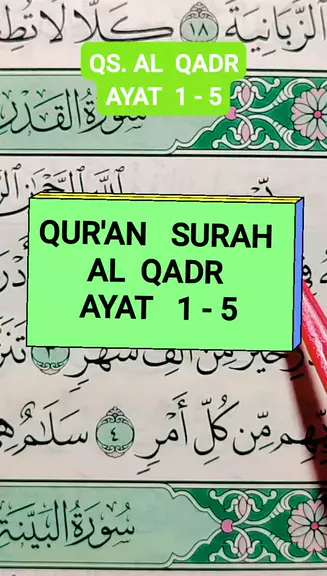 الزَّبَانِيَةَ ١٨ كَلَّا لَا تُطِ
QS. AL QADR
AYAT 1 - 5
سُورَةُ الْقَدْرِ
اللَّهِ الرَّحْمَٰنِ
QUR'AN SURAH
AL QADR
AYAT 1 - 5
مِّنْ أَلْفِ شَهْرٍ ٣ تَنَزَّ
مِّن كُلِّ أَمْرٍ ٤ سَلَامٌ هِيَ
سُورَةُ الْبَيِّنَةِ